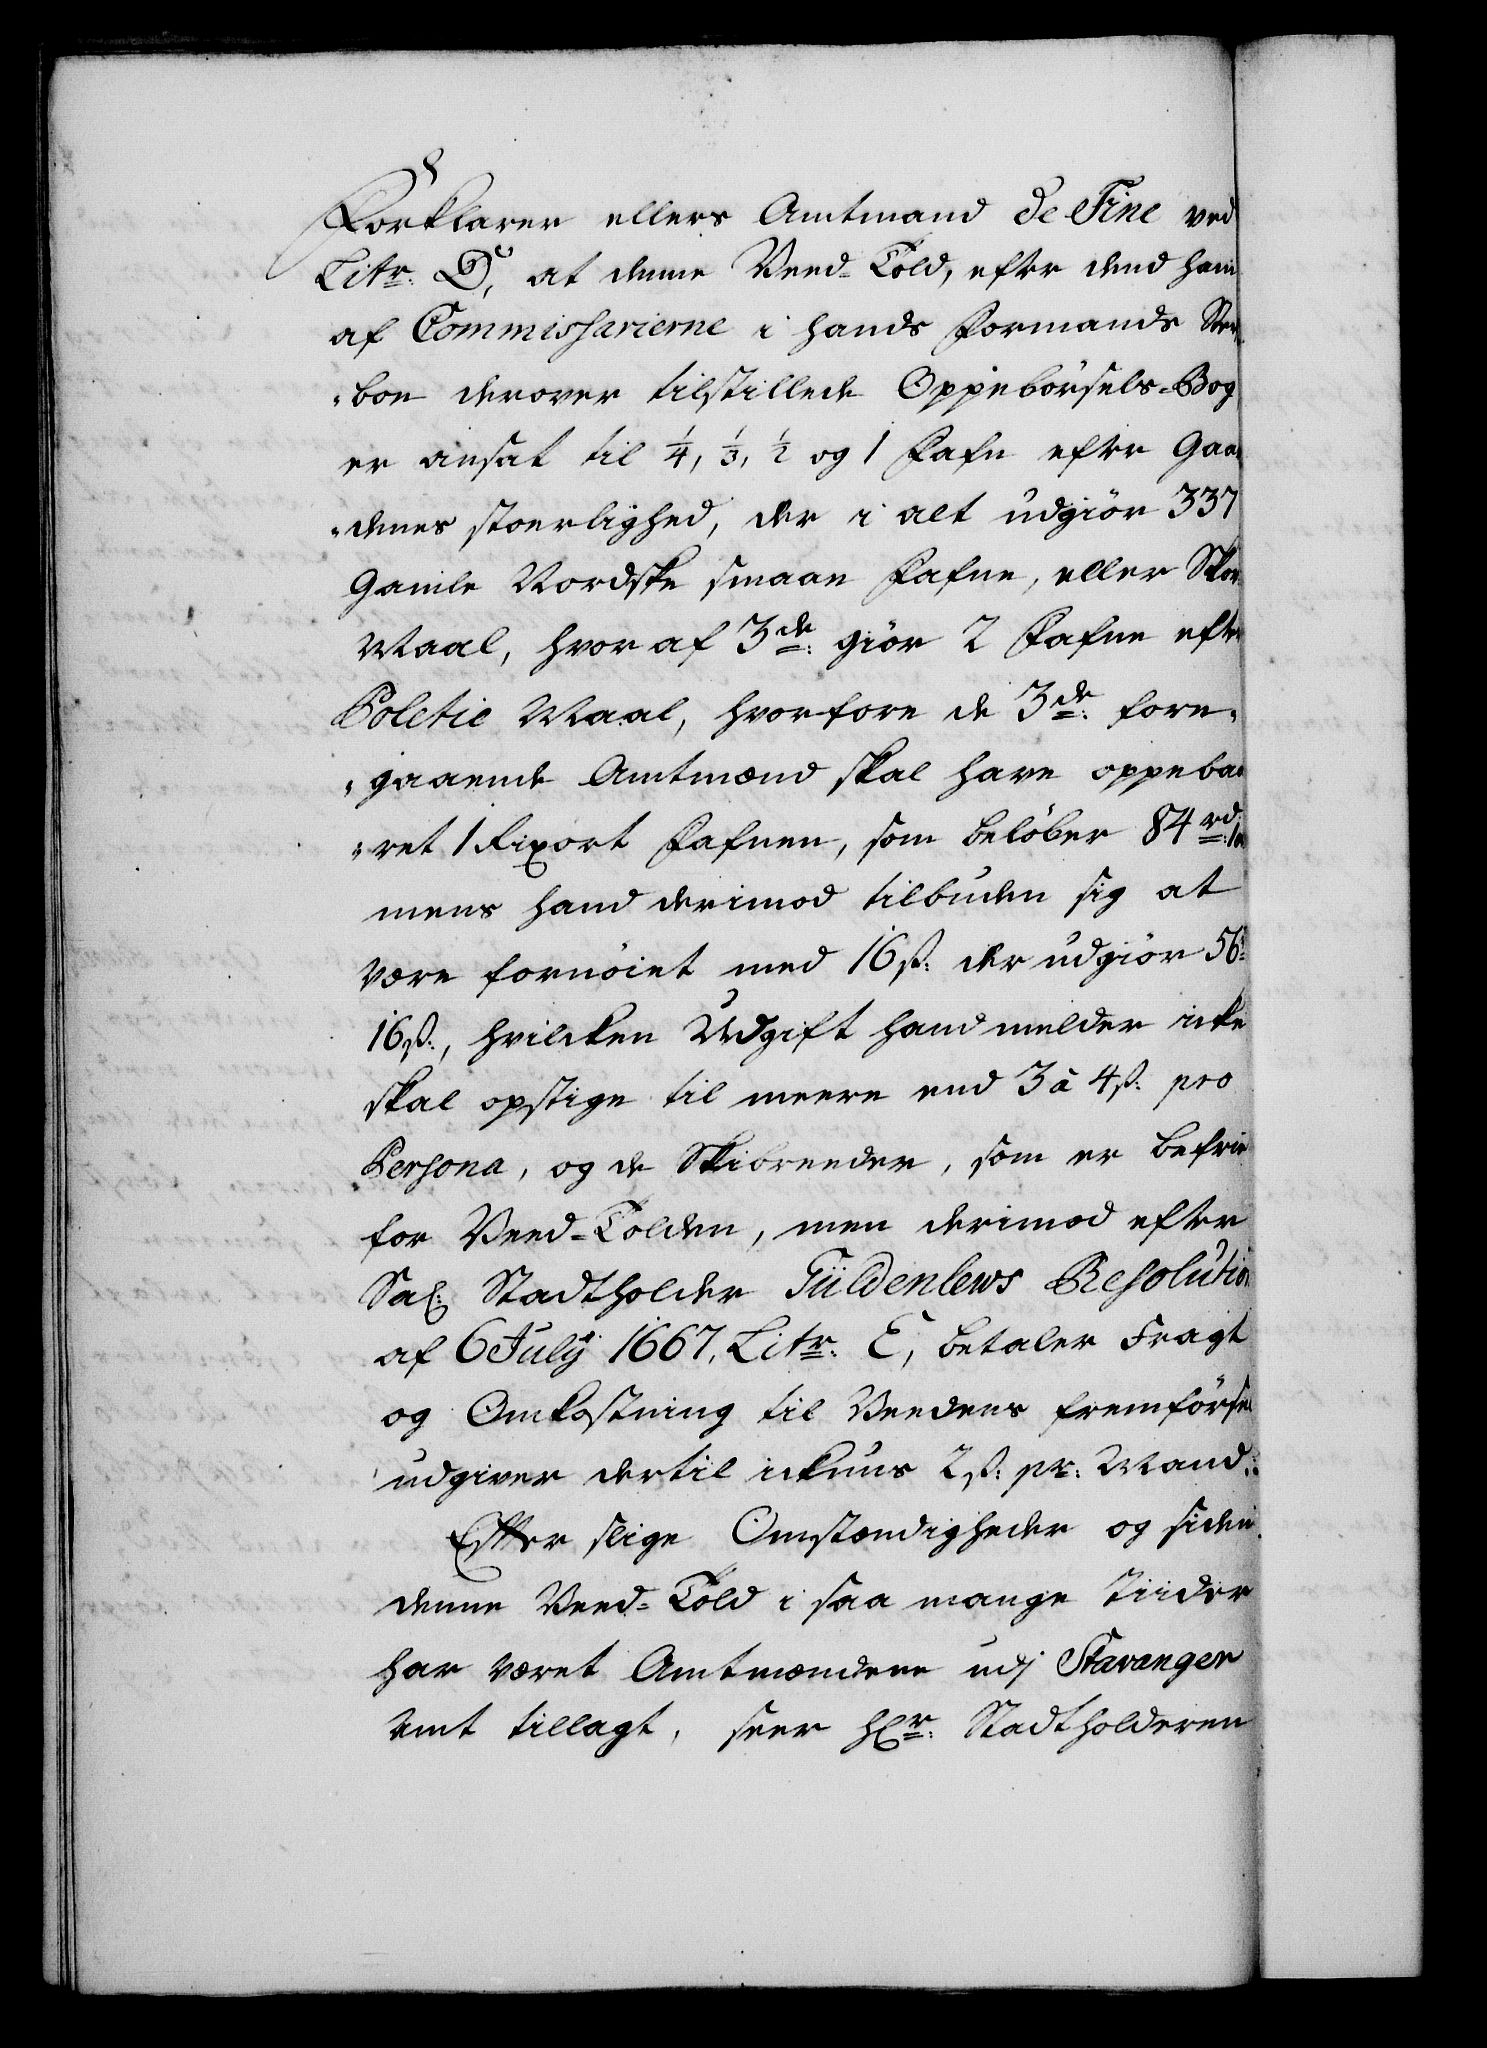 Forklarer ellers Amtmand de Fine ved
Litr: D, at denne Veed-Told, efter dend ham
af Commissarierne i hands Formands Ster-
-boe derover tilstillede Oppebörsels-Bog
er ansat til 1/4, 1/3, 1/2 og 1 Fafn efter Gaar-
-denes stoerlighed, der i alt udgiör 337
Gamle Nordske smaae Fafne, eller Skov
Maal, hvor af 3de: giör 2 Fafne efter
Poletie Maal, hvorfore de 3de: fore-
-gaaende Amtmænd skal have oppebaa-
-ret 1 Rixort Fafnen, som belöber 84 rd:
mens hand derimod tilbuden sig at
være fornöiet med 16 ß: der udgiör 56
16 ß:, hvilcken Udgift hand melder icke
skal opstige til meere end 3 à 4 ß: pro
Persona, og de Skibreeder, som er befrie
for Veed-Tolden, men derimod efter
Sal: Stadtholder Güldenlews Resolution
af 6 July 1667, Litr: E, betaler Fragt
og Omkostning til Veedens fremförsel
udgiver dertil ickuns 2 ß: pr: Mand:
Effter slige Omstændigheder og siden
denne Veed-Told i saa mange Tiider
har været Amtmændene udj Stavanger
Amt tillagt, seer Hr: Stadtholderen